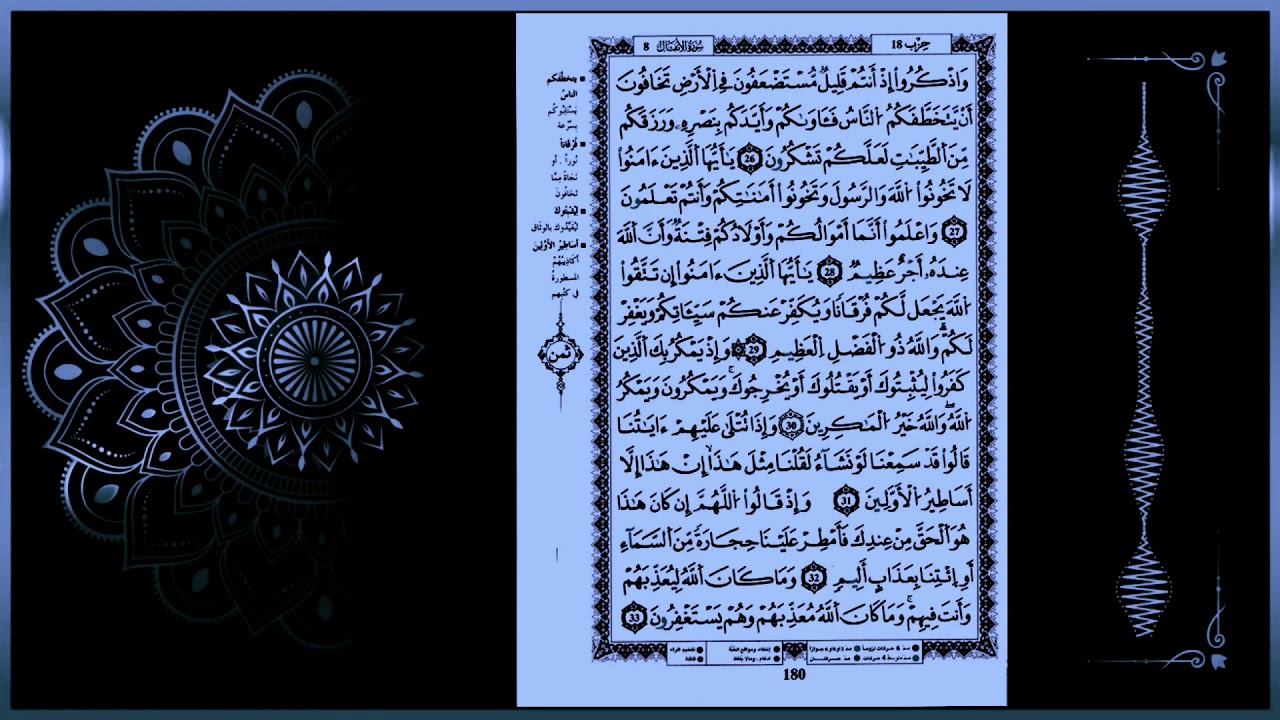 حِزْب 18
سُورَةُ الأَنفَال 8
وَاذْكُرُوا إِذْ أَنتُمْ قَلِيلٌ مُّسْتَضْعَفُونَ فِي الْأَرْضِ تَخَافُونَ
أَنْ يَّتَخَطَّفَكُمُ النَّاسُ فَـَٔاوَىٰكُمْ وَأَيَّدَكُم بِنَصْرِهِ وَرَزَقَكُم
مِّنَ الطَّيِّبَٰتِ لَعَلَّكُمْ تَشْكُرُونَ 26 يَٰأَيُّهَا الَّذِينَ ءَامَنُوا
لَا تَخُونُوا اللَّهَ وَالرَّسُولَ وَتَخُونُوا أَمَٰنَٰتِكُمْ وَأَنتُمْ تَعْلَمُونَ
27 وَاعْلَمُوا أَنَّمَا أَمْوَالُكُمْ وَأَوْلَادُكُمْ فِتْنَةٌ وَأَنَّ اللَّهَ
عِندَهُ أَجْرٌ عَظِيمٌ 28 يَٰأَيُّهَا الَّذِينَ ءَامَنُوا إِن تَتَّقُوا
اللَّهَ يَجْعَل لَّكُمْ فُرْقَانًا وَيُكَفِّرْ عَنكُمْ سَيِّـَٔاتِكُمْ وَيَغْفِرْ
لَكُمْ وَاللَّهُ ذُو الْفَضْلِ الْعَظِيمِ 29 وَإِذْ يَمْكُرُ بِكَ الَّذِينَ
كَفَرُوا لِيُثْبِتُوكَ أَوْ يَقْتُلُوكَ أَوْ يُخْرِجُوكَ وَيَمْكُرُونَ وَيَمْكُرُ
اللَّهُ وَاللَّهُ خَيْرُ الْمَٰكِرِينَ 30 وَإِذَا تُتْلَىٰ عَلَيْهِمْ ءَايَٰتُنَا
قَالُوا قَدْ سَمِعْنَا لَوْ نَشَاءُ لَقُلْنَا مِثْلَ هَٰذَا إِنْ هَٰذَا إِلَّا
أَسَاطِيرُ الْأَوَّلِينَ 31 وَإِذْ قَالُوا اللَّهُمَّ إِن كَانَ هَٰذَا
هُوَ الْحَقَّ مِنْ عِندِكَ فَأَمْطِرْ عَلَيْنَا حِجَارَةً مِّنَ السَّمَاءِ
أَوِ ائْتِنَا بِعَذَابٍ أَلِيمٍ 32 وَمَا كَانَ اللَّهُ لِيُعَذِّبَهُمْ
وَأَنتَ فِيهِمْ وَمَا كَانَ اللَّهُ مُعَذِّبَهُمْ وَهُمْ يَسْتَغْفِرُونَ 33
يتخطّفكم
الناسُ
يَسْتَلِبُوكُم
بِسُرْعَة
فُرْقَاناً
نُوراً . أو
نَجَاةً مِمَّا
تَخَافُونَ
لِيُثْبِتُوكَ
لِيُقَيِّدُوكَ بِالوَثَاقِ
أَسَاطِيرُ الأَوَّلِينَ
أَكَاذِيبُهُمْ
المسطورةُ
في كتبهم
ثُمن
مدّ 6 حركات لزوماً مدّ 2 أو 4 أو 6 جوازاً
مدّ حركتان
إخفاء، ومواقع الغُنَّة
ادغام ، وما لا يُلفَظ
تفخيم الراء
قلقلة
180